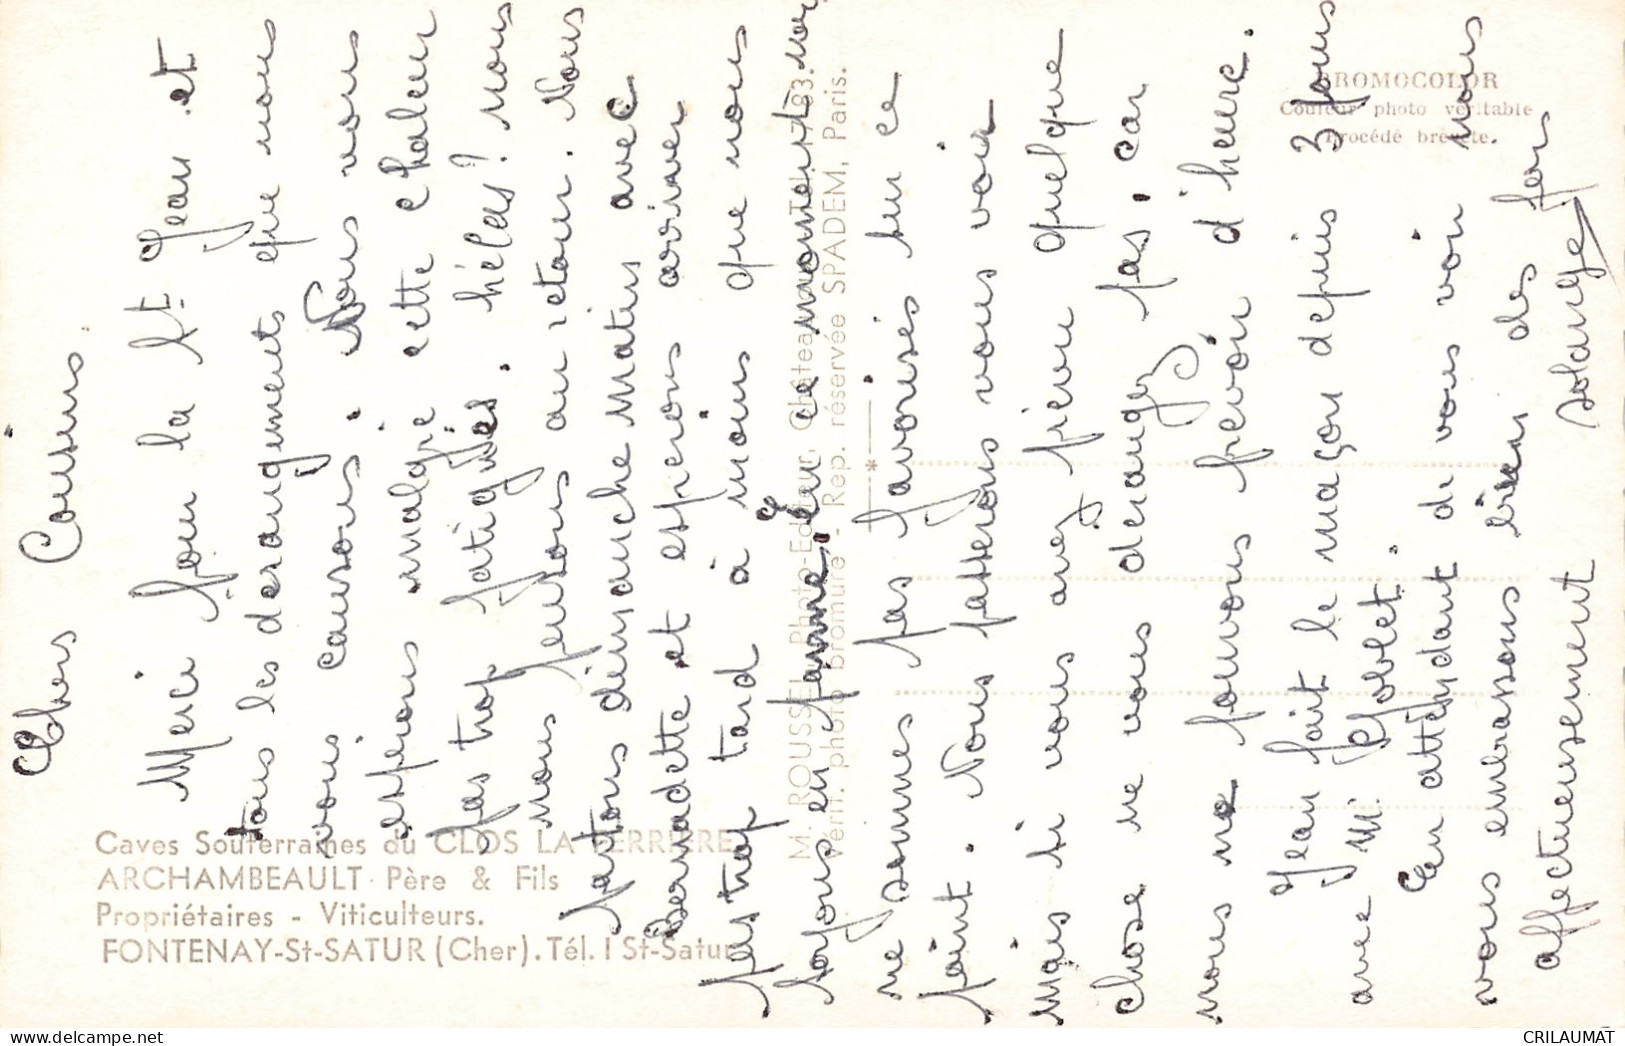 Chers Cousins
Merci pour la St Jean et
tous les derangements que nous
vous causons. Nous vous
espérons malgré cette chaleur
pas trop fatigués. hélas! nous
nous pensons au retour. Nous
partons dimanche matin avec
Bernadette et esperons arriver
pas trop tard à moins que nous
soyons en panne. En ce moment nous
ne sommes pas favorisés sur ce
point. Nous passerons vous voir
mais si vous avez prevu quelque
chose ne vous derangez pas. car
nous ne pouvons prevoir d'heure.
Jean fait le maçon depuis 3 jours
avec M.
En attendant de vous voir nous
vous embrassons bien des fois
affectueusement
Solange
Caves Souterraines du CLOS LA PERRIERE
ARCHAMBEAULT Père & Fils
Propriétaires - Viticulteurs.
FONTENAY-St-SATUR (Cher). Tél. 1 St-Satur
M. ROUSSEL, Photo-Editeur, Tél. 183.
Vérit. photo bromure - Rep. réservée SPADEM, Paris.
BROMOCOLOR
Couleur photo véritable
Procédé breveté.
CRILAUMAT